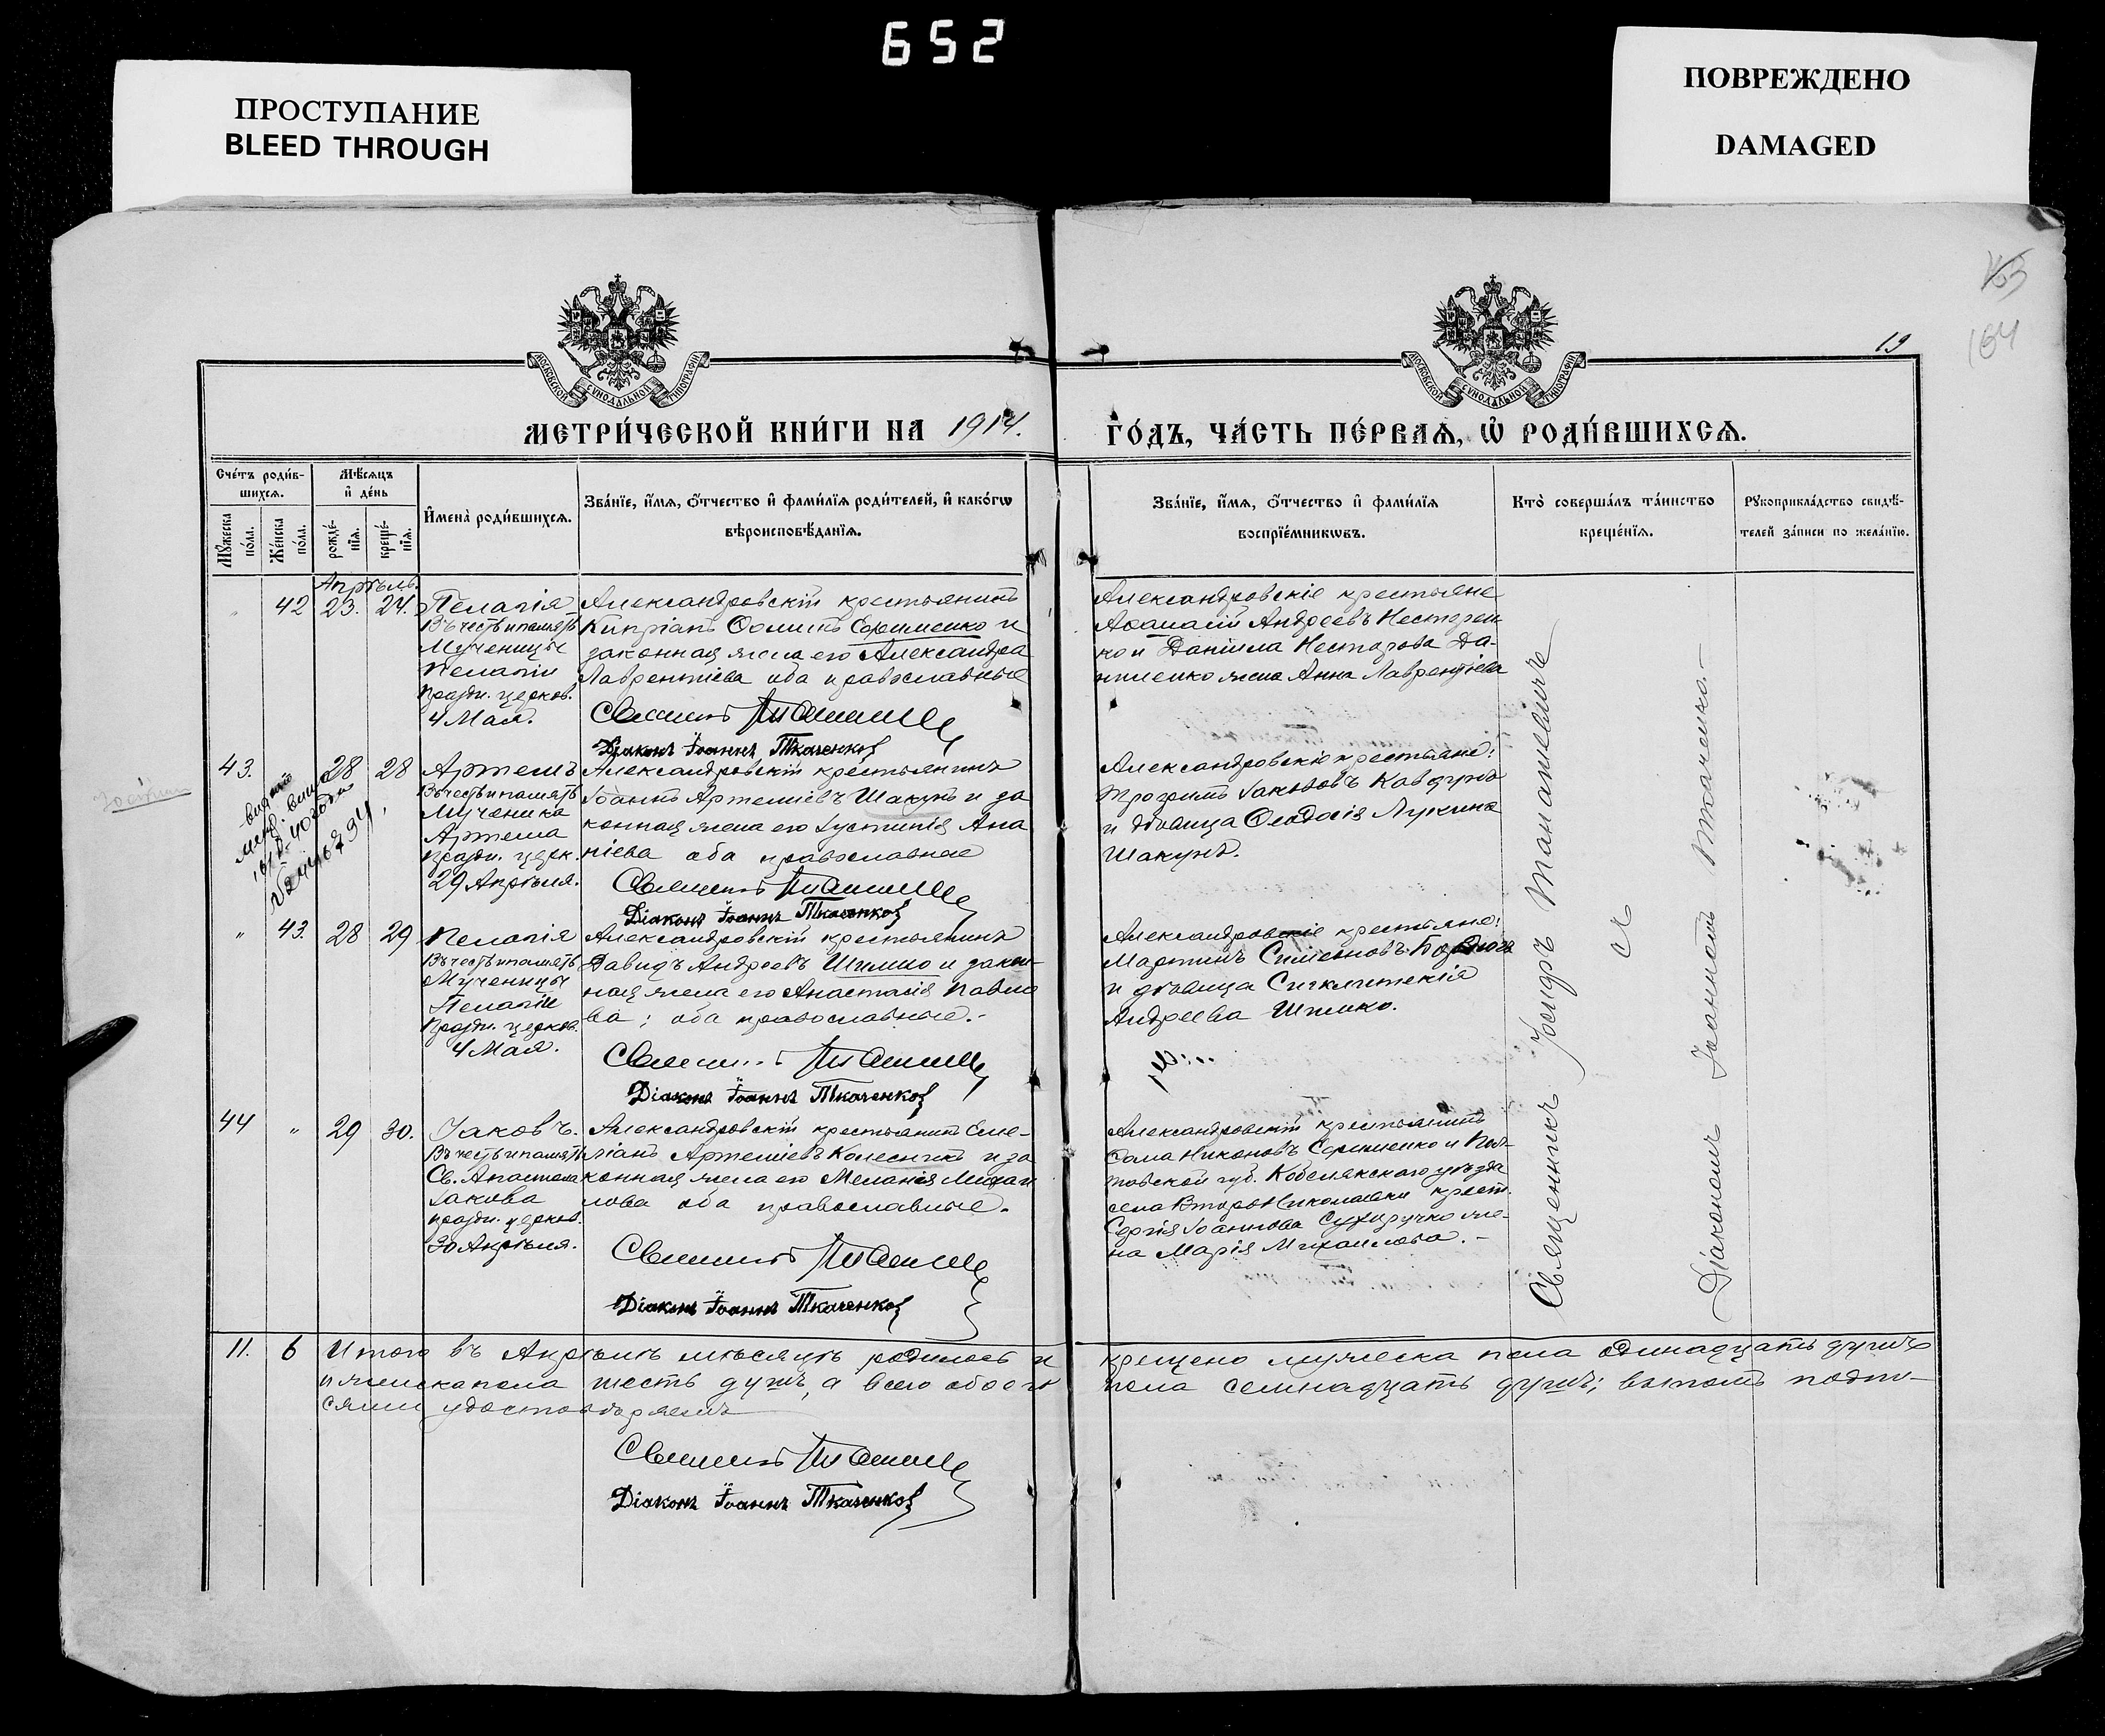 652
ПРОСТУПАНИЕ
BLEED THROUGH
ПОВРЕЖДЕНО
DAMAGED
19
164
МОСКОВСКОЙ СѴНОДАЛЬНОЙ ТИПОГРАФІИ
МОСКОВСКОЙ СѴНОДАЛЬНОЙ ТИПОГРАФІИ
МЕТРИ́ЧЕСКОЙ КНИ́ГИ НА 1914.
ГО́ДЪ, ЧА́СТЬ ПЕ́РВАѦ, Ѡ҆ РОДИ́ВШИХСѦ.
Сче́тъ роди́в-
шихсѧ.
Мꙋ́жеска по́ла.
Же́нска по́ла.
Мѣ́сѧцъ
и҆ де́нь
рожде́-
нїѧ.
креще́-
нїѧ.
И҆мена̀ роди́вшихсѧ.
Зва́нїе, и҆́мѧ, ѻ҆́тчество и҆ фами́лїѧ роди́телей, и҆ како́гѡ
вѣроисповѣ́данїѧ.
Зва́нїе, и҆́мѧ, ѻ҆́тчество и҆ фами́лїѧ
воспрїе́мникѡвъ.
Кто̀ соверша́лъ та́инство
креще́нїѧ.
Рꙋкоприкла́дство свидѣ́-
телей за́писи по жела́нїю.
Апрѣль.
" 42 23. 24.
Пелагія
Въ честь и память
Мученицы
Пелагіи
праздн. церков.
4 Мая.
Александровскій крестьянинъ
Кипріанъ Ѳоминъ Ефименко и
законная жена его Александра
Лаврентіева оба православные
Священникъ
Діаконъ Іоаннъ Ткаченко
Александровскіе крестьяне
Аѳанасій Андреевъ Нестерен
ко и Даніила Несторова Да-
ниленко жена Анна Лаврентіева
43. 28 28
Артемъ
Въ честь и память
Мученика
Артема
праздн. церк.
29 Апрѣля.
Александровскій крестьянинъ
Іоаннъ Артеміевъ Шакунъ и за
конная жена его Іустинія Ана
ніева оба православные
Священникъ
Діаконъ Іоаннъ Ткаченко
Александровскіе крестьяне:
Трофимъ Іаковъ Кавунъ
и дѣвица Ѳеодосія Лукина
Шакунъ.
" 43. 28 29
Пелагія
Въ честь и память
Мученицы
Пелагіи
праздн. церков.
4 Мая.
Александровскій крестьянинъ
Давидъ Андреевъ Шимко и закон-
ная жена его Анастасія Павло
ва; оба православные.-
Священникъ
Діаконъ Іоаннъ Ткаченко
Александровскіе крестьяне:
Мартинъ Симеоновъ
и дѣвица Сигклитекія
Андреева Шимко.
44 " 29 30.
Іаковъ.
Въ честь и память
Св. Апостола
Іакова
праздн. церков.
30 Апрѣля.
Александровскій крестьянинъ Еме-
ліанъ Артеміевъ Колесникъ и за
конная жена его Меланія Михаи
лова оба православные.
Священникъ
Діаконъ Іоаннъ Ткаченко
Александровскій крестьянинъ
Сава Никоновъ Ефименко и Пол-
тавской губ. Кобелякскаго уѣзда
села Второ Николаевки крест.
Сергія Іоаннова Сухоручко же-
на Марія Михаилова.-
Священникъ Іосифъ
съ
Діакономъ Іоанномъ Ткаченко.-
11. 6 Итого въ Апрѣлѣ мѣсяцѣ родилось и крещено мужеска пола одинадцать душъ
и женска пола шесть душъ, а всего обоего пола семнадцать душъ; въ томъ подпи-
сями удостовѣряемъ
Священникъ
Діаконъ Іоаннъ Ткаченко